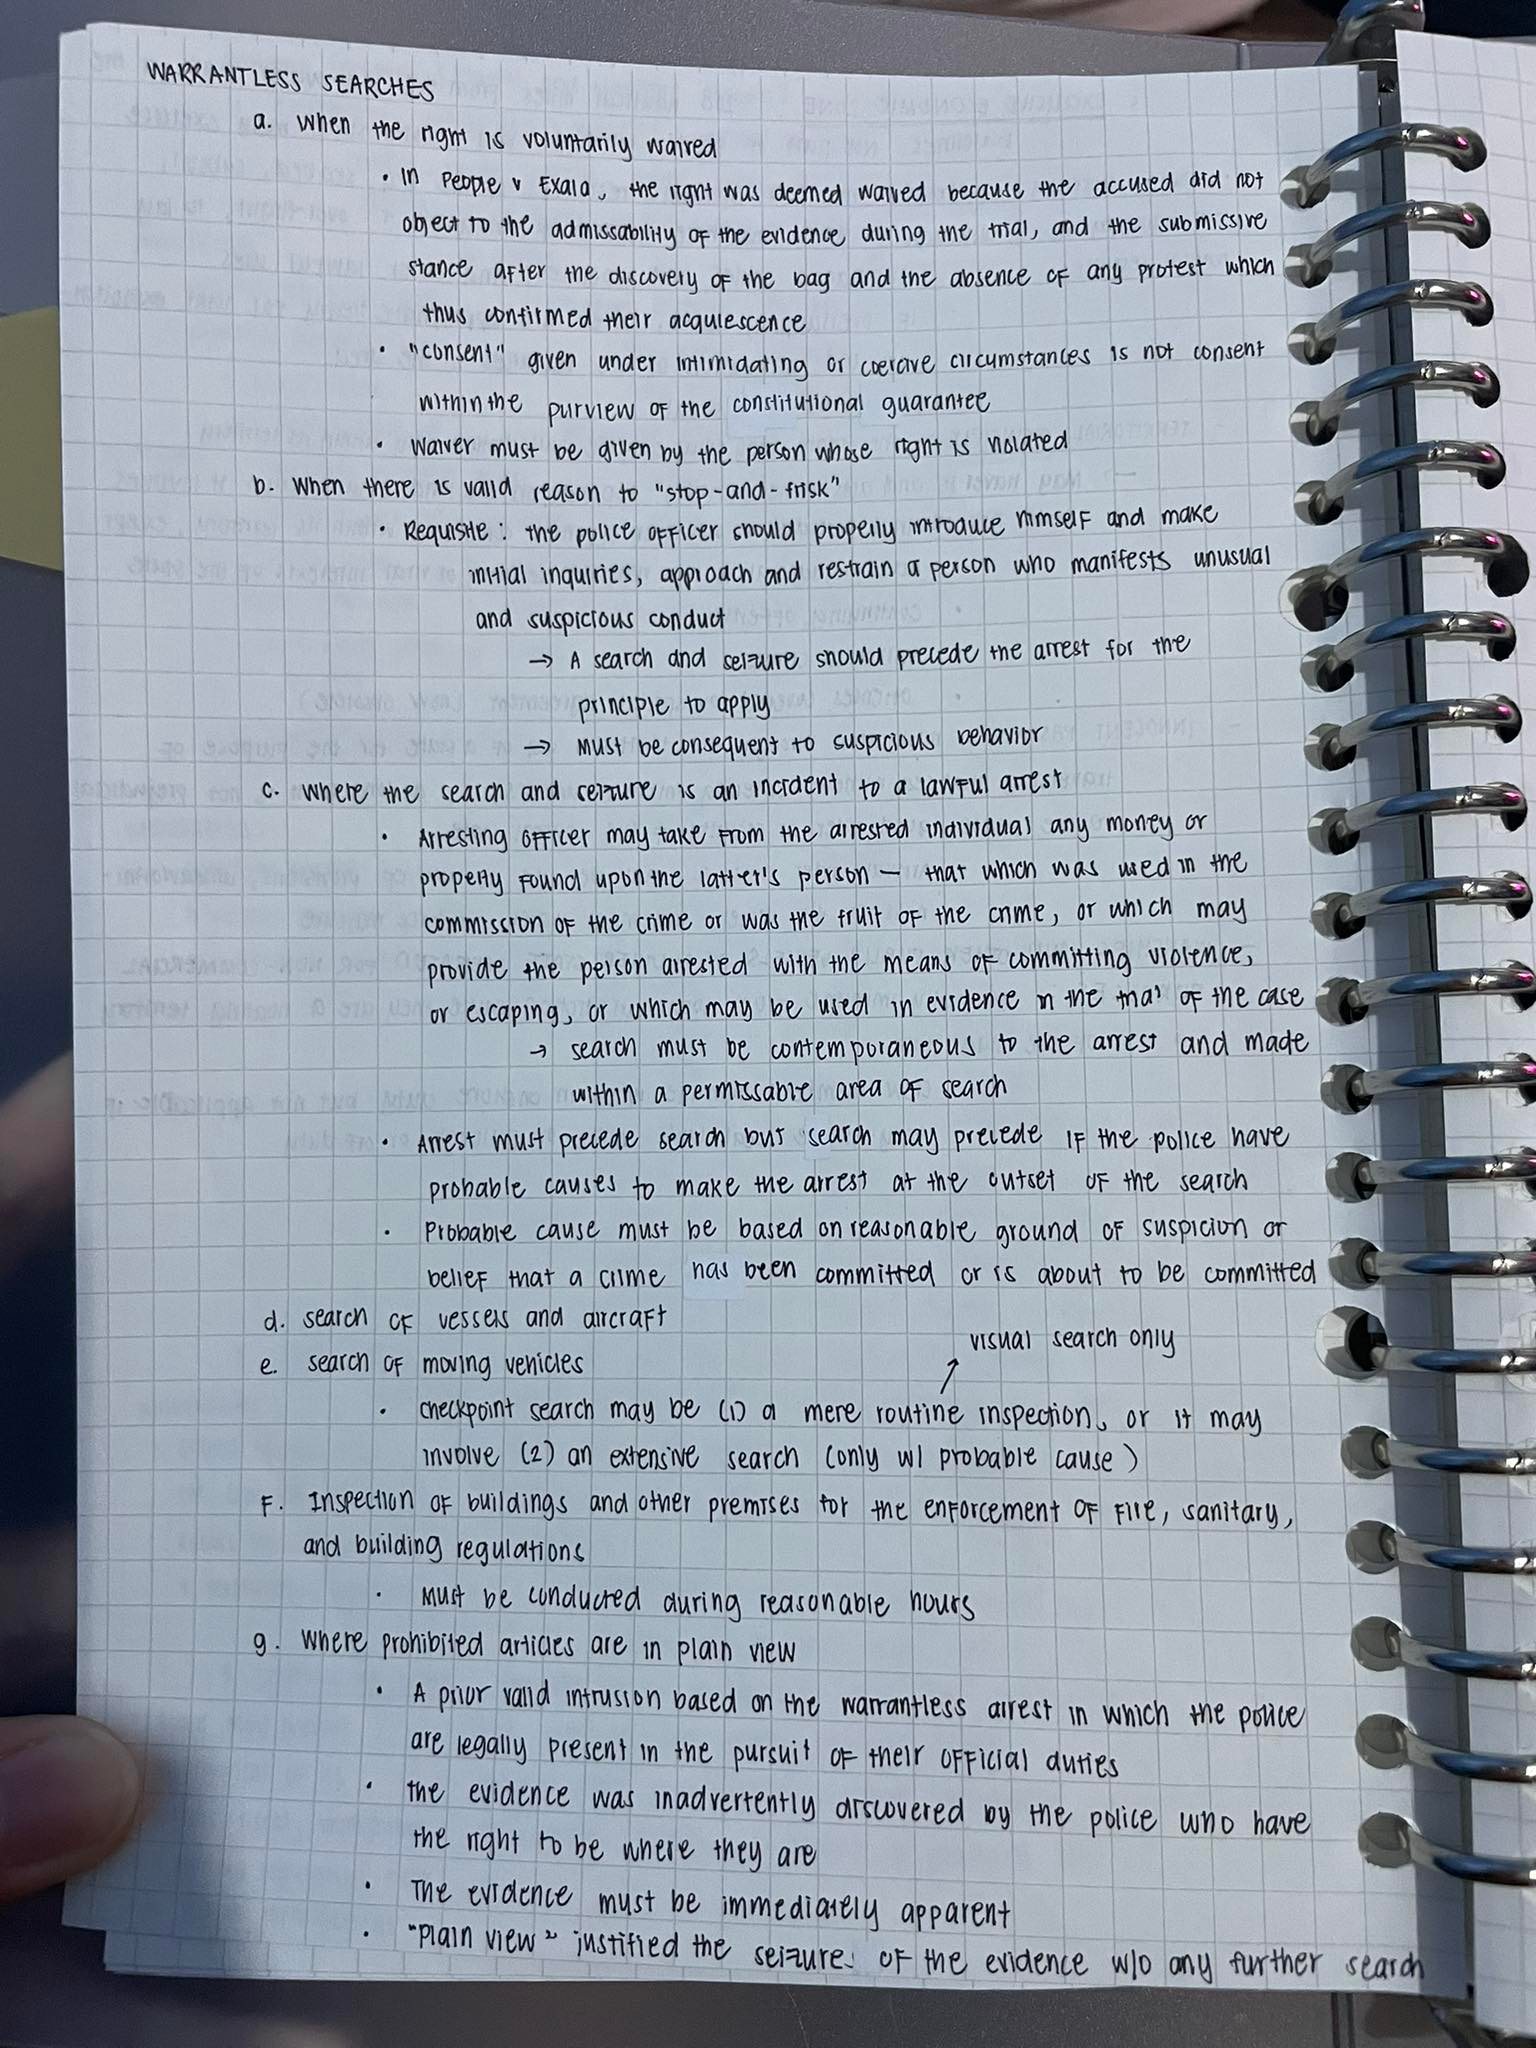 WARRANTLESS SEARCHES
a. When the right is voluntarily waived
• In People v Exala, the right was deemed waived because the accused did not
object to the admissability of the evidence during the trial, and the submissive
stance after the discovery of the bag and the absence of any protest which
thus confirmed their acquiescence
• "consent" given under intimidating or coercive circumstances is not consent
within the purview of the constitutional guarantee
• Waiver must be given by the person whose right is violated
b. When there is valid reason to "stop-and-frisk"
• Requisite: the police officer should properly introduce himself and make
initial inquiries, approach and restrain a person who manifests unusual
and suspicious conduct
→ A search and seizure should precede the arrest for the
principle to apply
→ Must be consequent to suspicious behavior
c. Where the search and seizure is an incident to a lawful arrest
• Arresting officer may take from the arrested individual any money or
property found upon the latter's person — that which was used in the
commission of the crime or was the fruit of the crime, or which may
provide the person arrested with the means of committing violence,
or escaping, or which may be used in evidence in the trial of the case
→ search must be contemporaneous to the arrest and made
within a permissable area of search
• Arrest must precede search but search may precede if the police have
probable causes to make the arrest at the outset of the search
• Probable cause must be based on reasonable ground of suspicion or
belief that a crime has been committed or is about to be committed
d. search of vessels and aircraft
visual search only
e. search of moving vehicles
• checkpoint search may be (1) a mere routine inspection, or it may
involve (2) an extensive search (only w/ probable cause)
F. Inspection of buildings and other premises for the enforcement of fire, sanitary,
and building regulations
• Must be conducted during reasonable hours
g. Where prohibited articles are in plain view
• A prior valid intrusion based on the warrantless arrest in which the police
are legally present in the pursuit of their official duties
• the evidence was inadvertently discovered by the police who have
the right to be where they are
• The evidence must be immediately apparent
• "Plain view" justified the seizure of the evidence w/o any further search